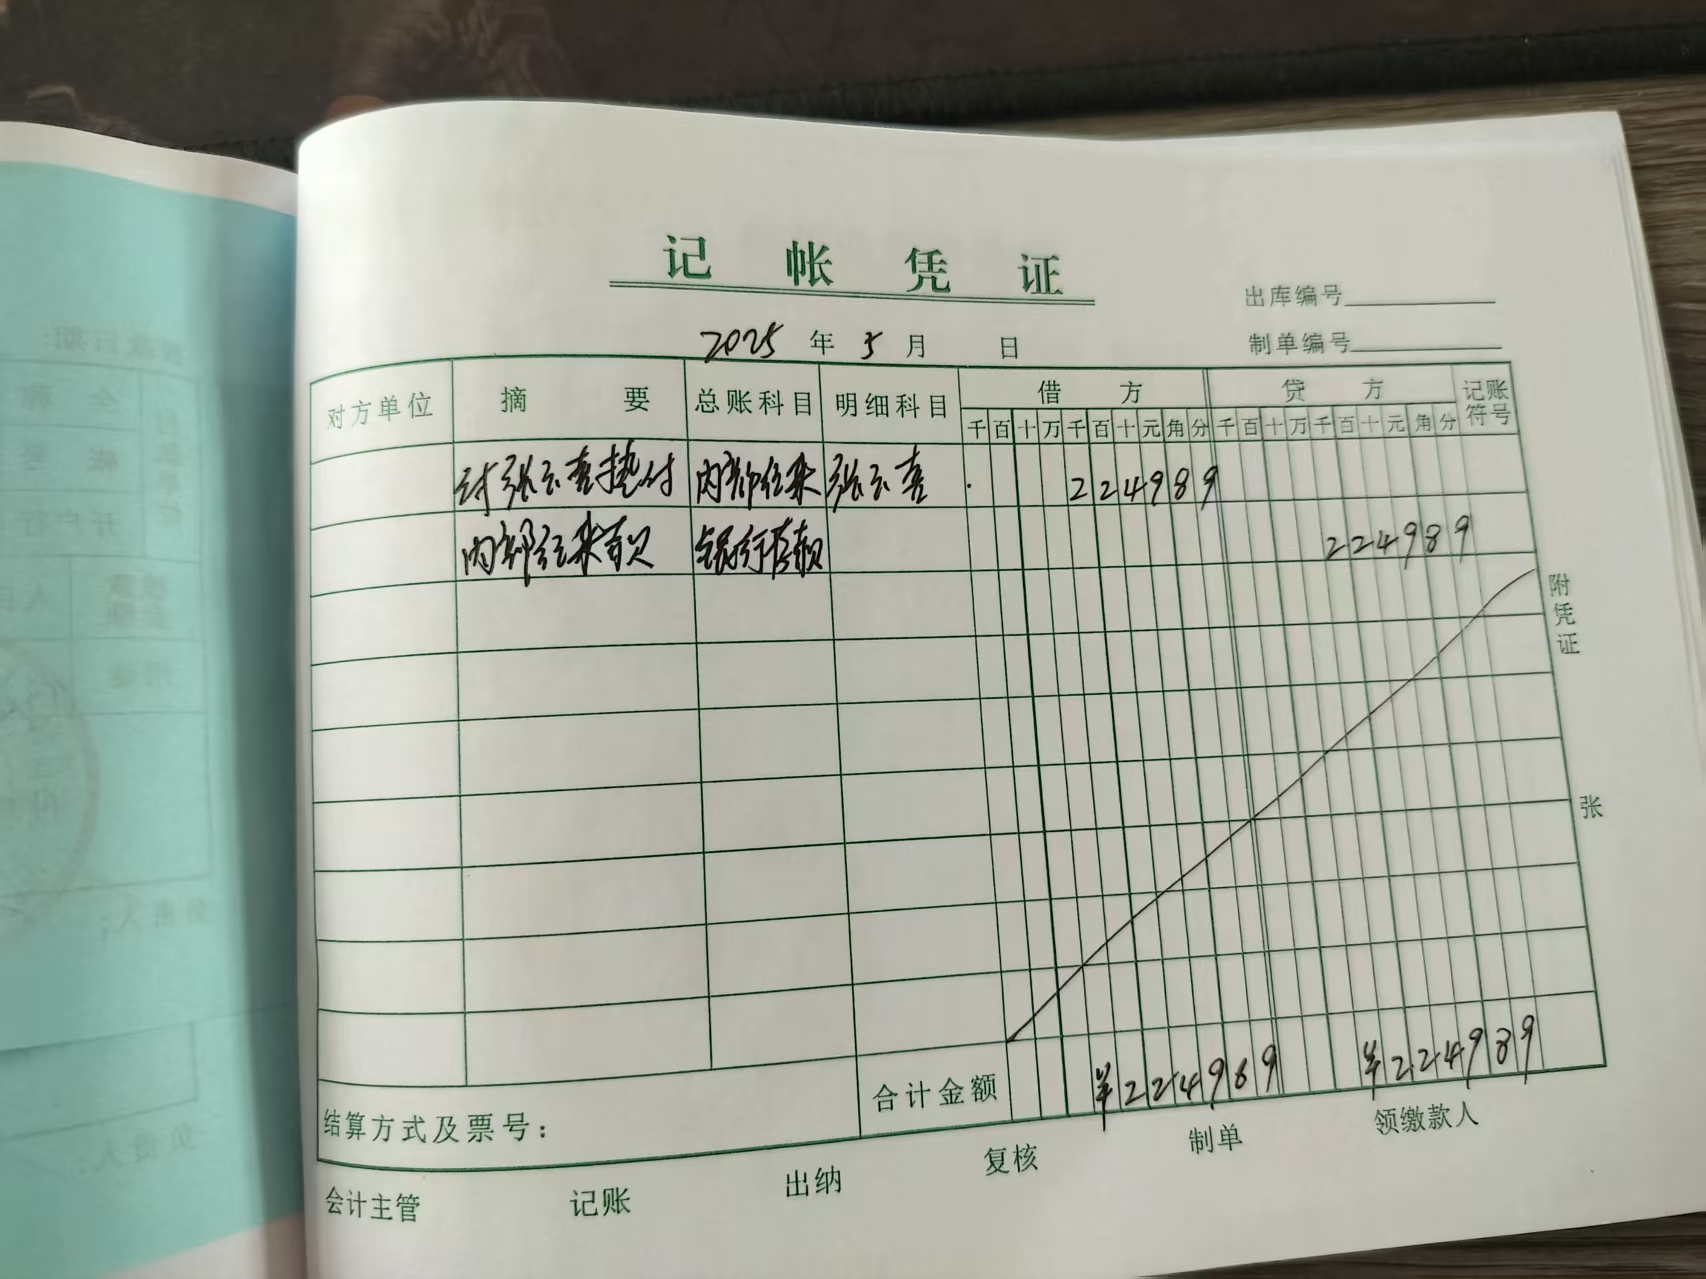 记帐凭证
出库编号
2025年5月 日
制单编号
对方单位 摘要 总账科目 明细科目 借方 贷方 记账符号
千百十万千百十元角分 千百十万千百十元角分
付张云喜垫付 内部往来 张云喜 224989
内部往来款 银行存款 224989
附凭证
张
合计金额 ¥224989 ¥224989
结算方式及票号：
会计主管 记账 出纳 复核 制单 领缴款人